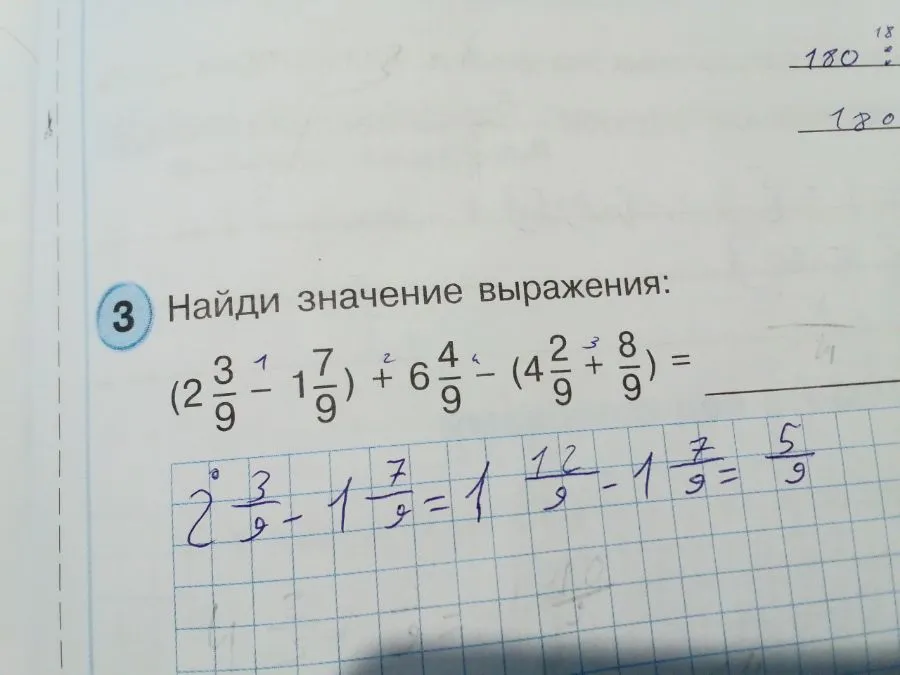 18
180 :
180
3 Найди значение выражения:
1 2 4 3
(2 3/9 − 1 7/9) + 6 4/9 − (4 2/9 + 8/9) =
2 3/9 − 1 7/9 = 1 12/9 − 1 7/9 = 5/9